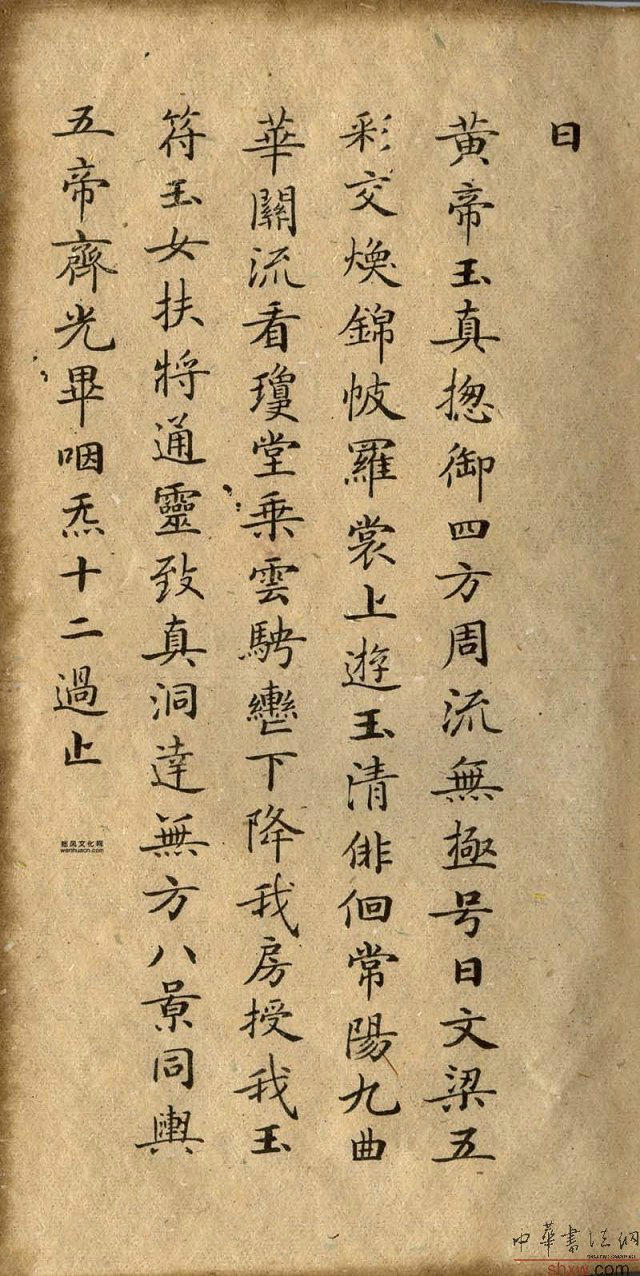 曰
黄帝玉真揔御四方周流無極号曰文梁五
彩交煥錦帔羅裳上遊玉清俳佪常陽九曲
華關流看瓊堂乗雲騁轡下降我房授我玉
符玉女扶將通靈致真洞達無方八景同輿
五帝齊光畢咽炁十二過止
wenhuacn.com
中華書法網
shxw.com